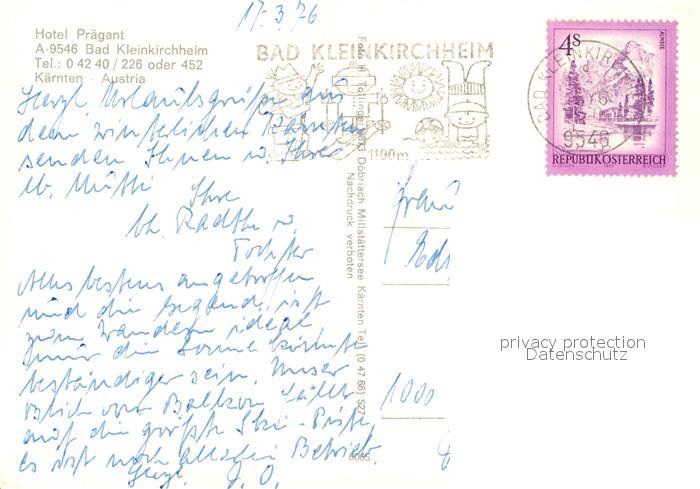 17.3.76
Hotel Prägant
A-9546 Bad Kleinkirchheim
Tel.: 0 42 40 / 226 oder 452
Kärnten · Austria
BAD KLEINKIRCHHEIM
1100m
BAD KLEINKIRCH
9546
4S
ALMSEE
REPUBLIK ÖSTERREICH
Herzl. Urlaubsgrüße aus
dem winterlichen Kärnten
senden Ihnen u. Ihrer
lb. Mutti
Ihre
u.
Tochter
Alles bestens angetroffen
und die Gegend ist
zum Wandern ideal,
nur die Sonne könnte
beständiger sein. Unser
Blick vom Balkon fällt
auf die größte Ski-Piste,
es ist noch allerlei Betrieb.
Herzl.
Döbriach Millstättersee Kärnten Tel. (0 47 66) 527
Nachdruck verboten
6065
Frau
1000
privacy protection
Datenschutz